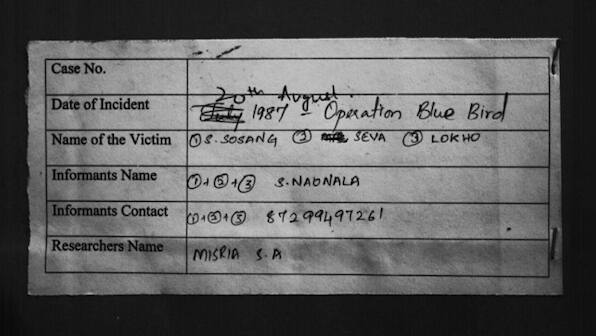 Case No.
20th August.
Date of Incident 1987 - Operation Blue Bird
Name of the Victim ① S. SOSANG ② SEVA ③ LOKHO
Informants Name ①+②+③ S. NAONALA
Informants Contact ①+②+③ 87299497261
Researchers Name MISRIA S. A